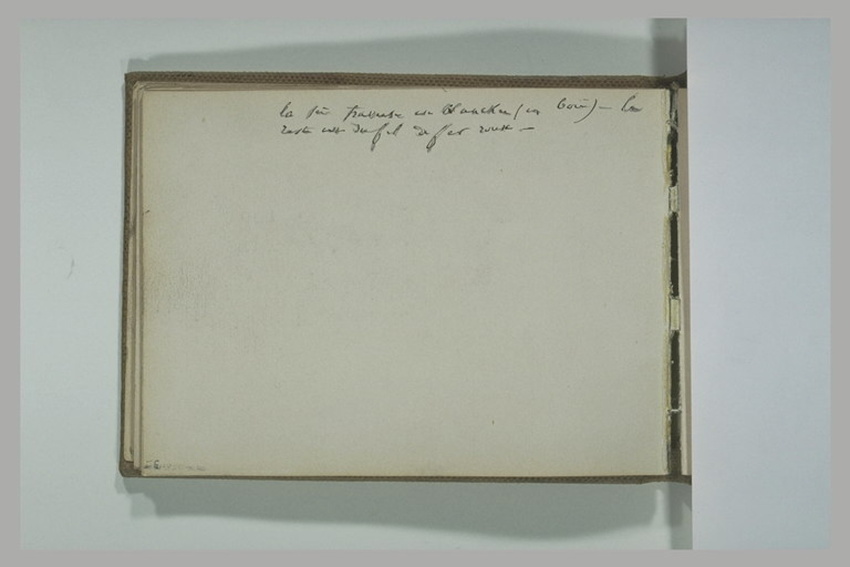 la 1ère traverse est blanche (en bois) – le
reste est du fil de fer roux –